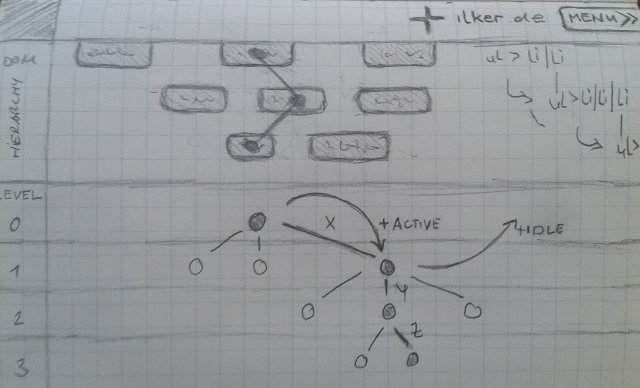 + ilker.de MENU >>
DOM HIERARCHY
uL > Li|Li
uL>Li|Li|Li
uL>
LEVEL
0
X
+ACTIVE
1
Y
2
Z
3